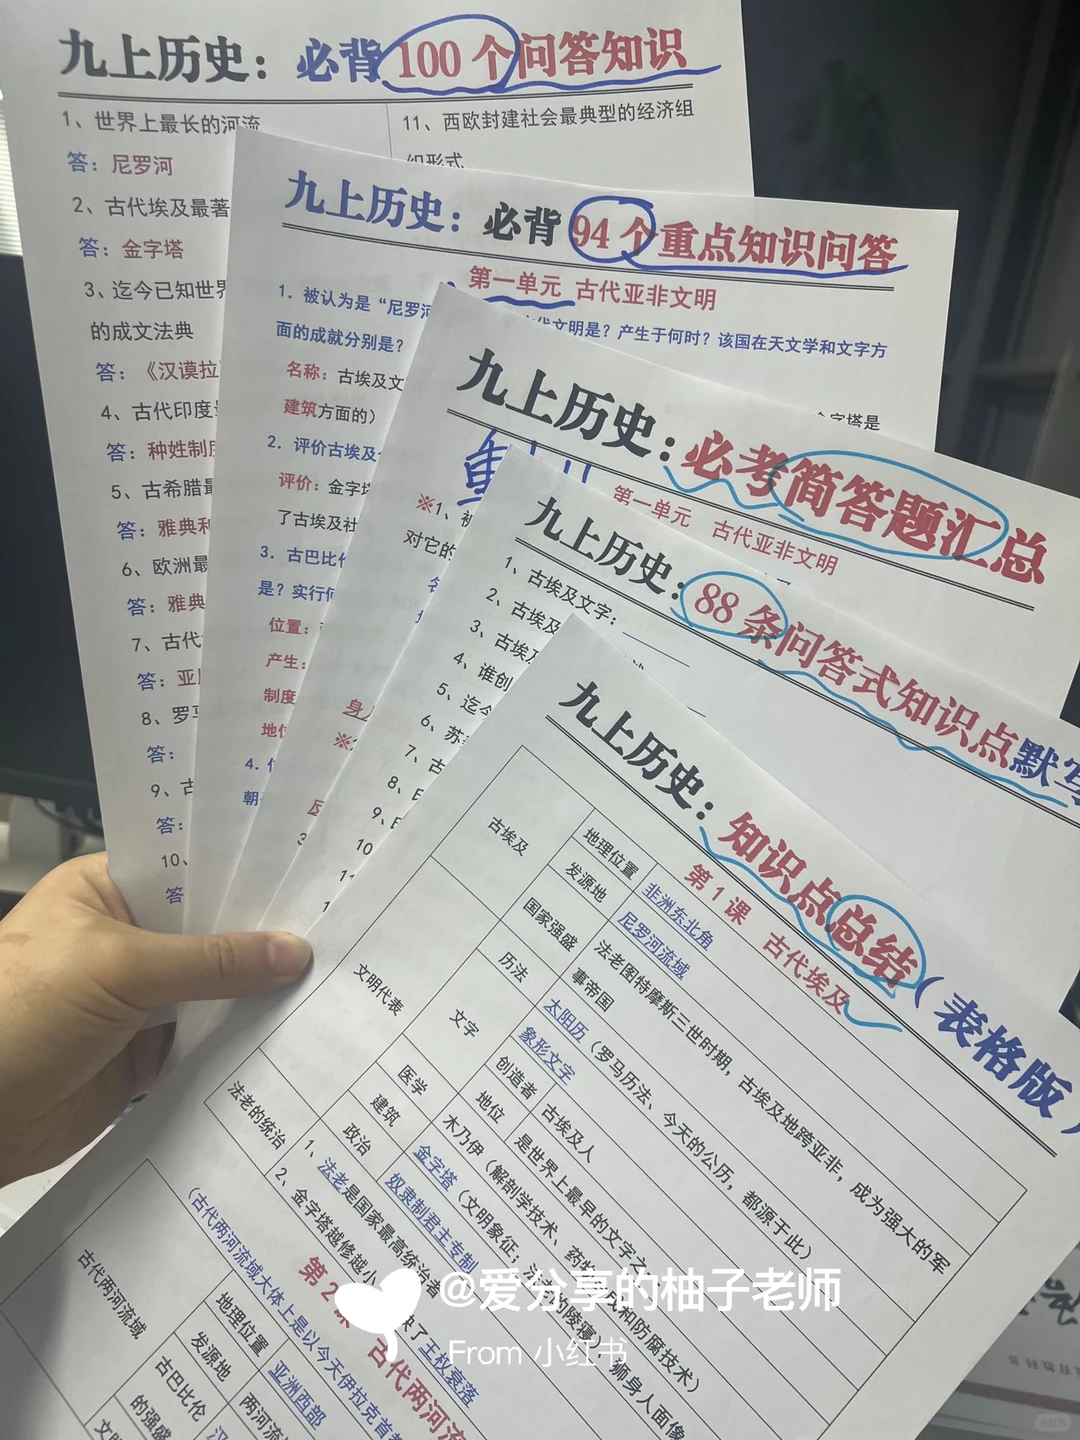 九上历史：必背100个问答知识
1、世界上最长的河流
答：尼罗河
2、古代埃及最著
答：金字塔
3、迄今已知世界
的成文法典
答：《汉谟拉
4、古代印度
答：种姓制度
5、古希腊最
答：雅典和
6、欧洲最
答：雅典
7、古代
答：亚
8、罗马
答：
9、古
答：
10、
答
11、西欧封建社会最典型的经济组
织形式
九上历史：必背94个重点知识问答
第一单元 古代亚非文明
1．被认为是“尼罗河
代文明是？产生于何时？该国在天文学和文字方
面的成就分别是？
名称：古埃及文
金字塔是
建筑方面的）
2．评价古埃及
评价：金字塔
了古埃及社
3．古巴比伦
是？实行何
位置：
产生：
制度
地位
4．
朝
九上历史：必考简答题汇总
第一单元 古代亚非文明
※1、被
对它的
九上历史：88条问答式知识点默写
1、古埃及文字：
2、古埃及
3、古埃及
4、谁创
5、迄今
6、苏
7、古
8、
9、
10
11
九上历史：知识点总结（表格版）
第1课 古代埃及
古埃及
地理位置
非洲东北角
发源地
尼罗河流域
国家强盛
法老图特摩斯三世时期，古埃及地跨亚非，成为强大的军
事帝国
文明代表
历法
太阳历（罗马历法、今天的公历，都源于此）
文字
象形文字
创造者
古埃及人
地位
是世界上最早的文字之
医学
木乃伊（解剖学技术、药物
成和防腐技术）
建筑
金字塔（文明象征；法老的陵寝）
狮身人面像
政治
奴隶制君主专制
法老的统治
1、法老是国家最高统治者
2、金字塔越修越小
映了王权衰落
第2课 古代两河流
（古代两河流域大体上是以今天伊拉克首都
古代两河流域
地理位置
亚洲西部
发源地
两河流
古巴比伦
的强盛
汉
文明
@爱分享的柚子老师
From 小红书
小红书